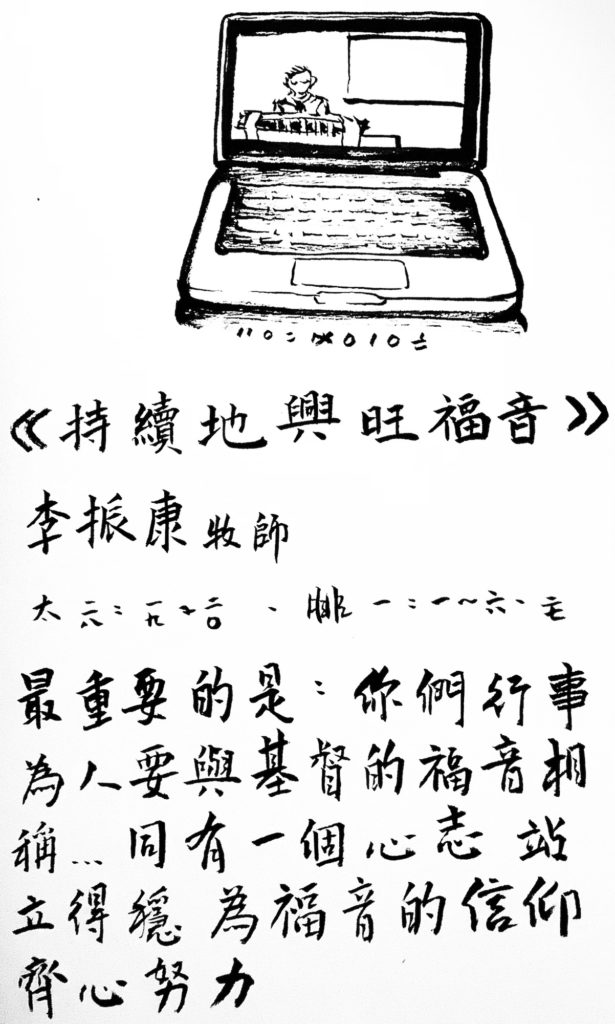 《持續地興旺福音》
李振康牧師
太 二八：一九～二〇、腓 一：一～六、二七
最重要的是：你們行事
為人要與基督的福音相
稱…同有一個心志 站
立得穩 為福音的信仰
齊心努力